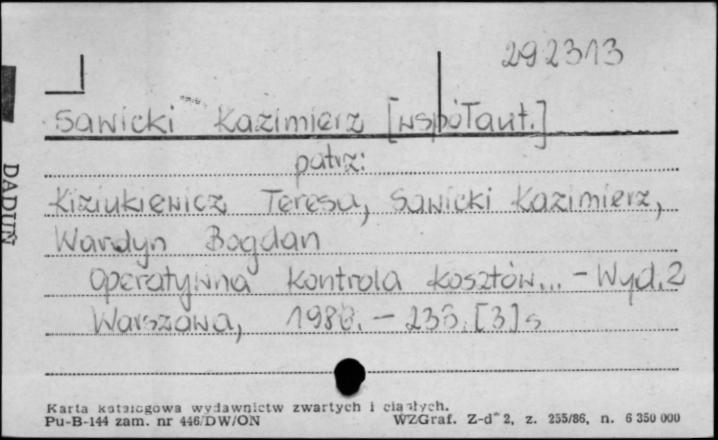 292313
Sawicki Kazimierz [współaut.]
patrz:
Kiziukiewicz Teresa, Sawicki Kazimierz,
Wardyn Bogdan
Operatywna kontrola kosztów... - Wyd. 2
Warszawa, - [3] s
DADUŃ
Karta katalogowa wydawnictw zwartych i ciągłych.
Pu-B-144 zam. nr 446/DW/ON WZGraf. Z-d 2, z. 255/86, n. 6 350 000